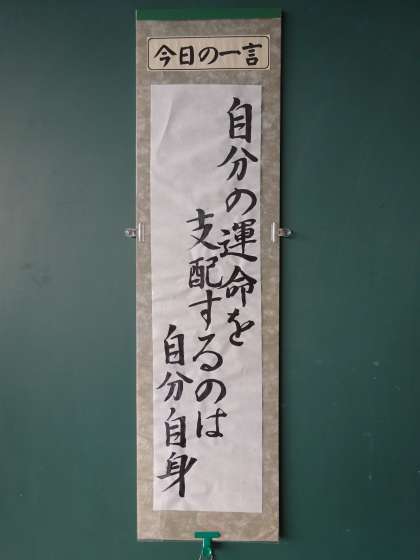 今日の一言
自分の運命を
支配するのは
自分自身